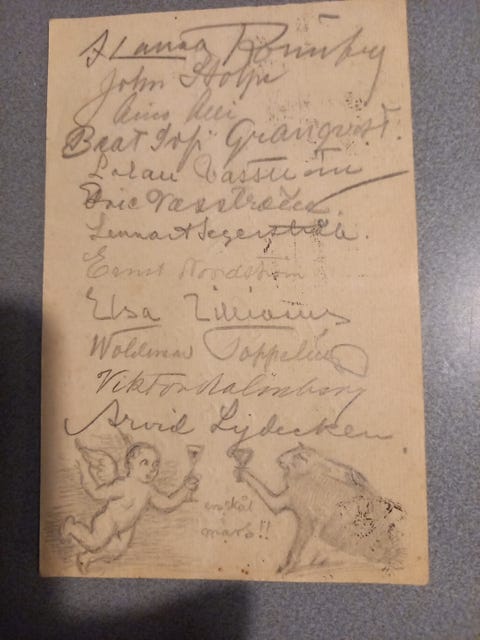 Hanna Rönnberg
John Stolpe
Aino Alli
Beat Sofi Granqvist.
Eric Vasström
Lennart Segerstråle.
Ernst Nordström
Elsa Zilliacus
Woldemar Toppelius
Viktor Malmberg
Arvid Lydecken
en skål
mars!!